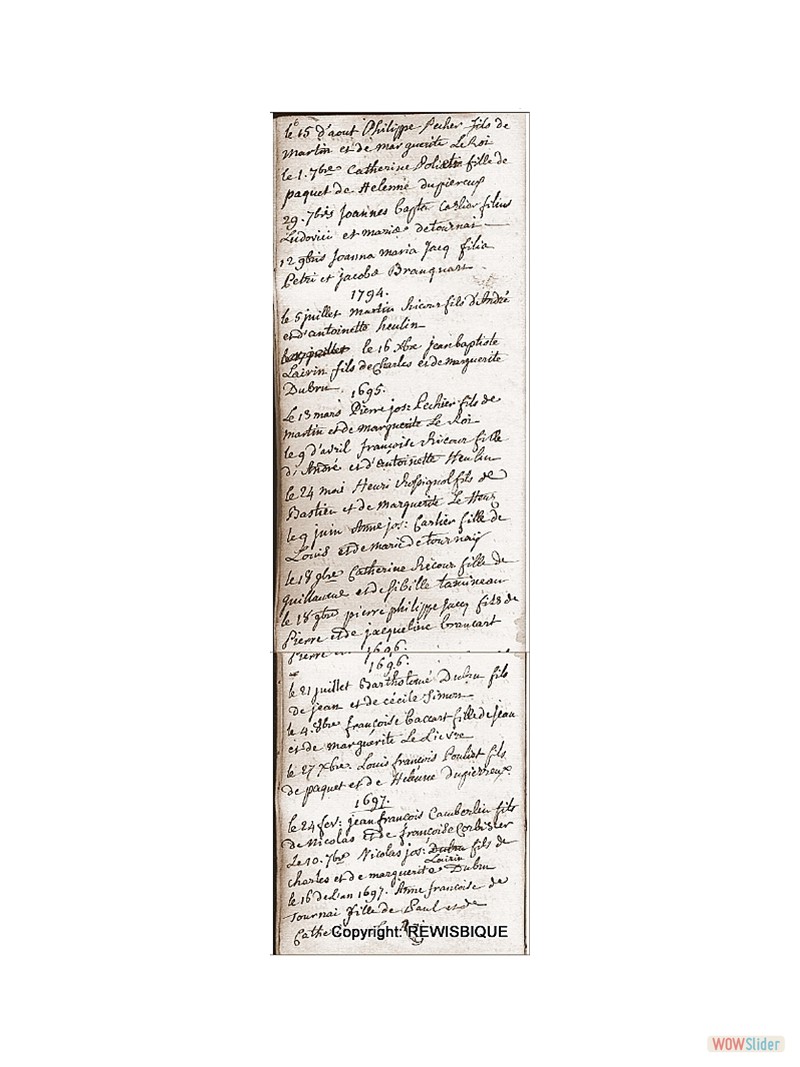 le 15 d'aout Philippe Pecher fils de
martin et de marguerite Le Roi
le 1. 7bre Catherine fille de
paquet de Helenne dupiereux
29. 7bris Joannes bapta Carlier filius
Ludovici et mariæ detournai
12 9bris Joanna maria Jacq filia
Petri et jacobæ Branquart
1794.
le 5 juillet martin Ricour fils d'André
et d'antoinette heulin
le 16 jean baptiste
Lairin fils de Charles et de marguerite
Dubru
1695.
Le 13 mars Pierre jos: Pechier fils de
martin et de marguerite Le Roi
le 9 d'avril françoise Ricour fille
d'André et d'antoinette Heulin
le 24 mai Henri Rossignol fils de
Bastien et de marguerite Le
le 9 juin Anne jos: Carlier fille de
Louis et de marie de tournay
le 18 9bre Catherine Ricour fille de
guillaume et de sibille tamineau
le 18 9bre pierre philippe Jacq fils de
Pierre et de jacqueline brancart
Pierre
1696.
1696.
le 21 juillet Bartholomé Dubru fils
de jean et de cécile Simon
le 4. 8bre françoise baccart fille de jean
et de marguerite Le Lievre
le 27 Xbre. Louis françois Pouliet fils
de paquet et de Helenne dupierreux
1697.
le 24 fev: jean françois Camberlin fils
de Nicolas et de françoise Corbisier
Le 10. 7bre Nicolas jos: Dubru fils de
Lairin
charles et de marguerite Dubru
le 16 de l'an 1697. Anne francoise de
Tournai fille de Paul et de
Cathe
Copyright: REWISBIQUE
WOWSlider